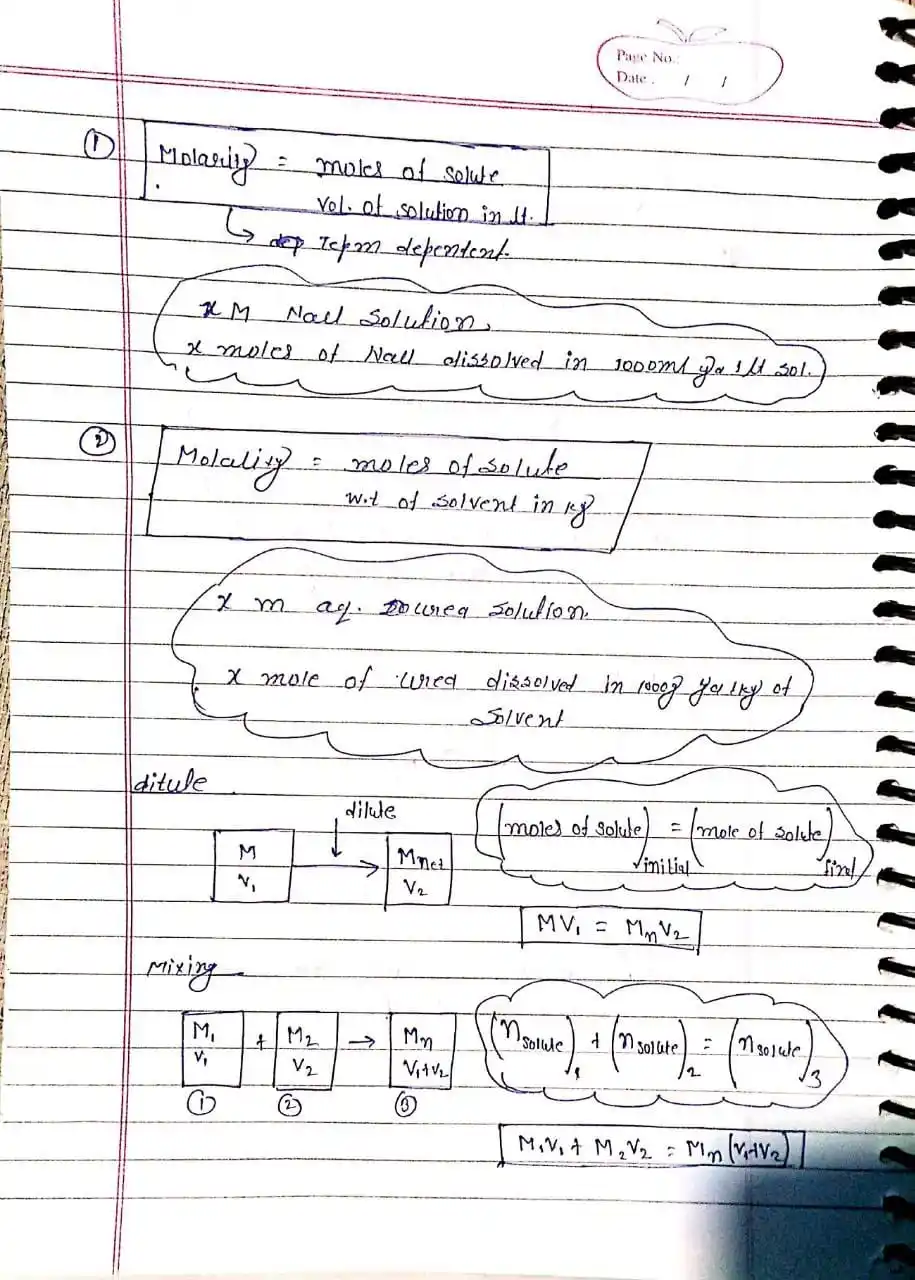 Page No.:
Date. / /
① Molarity = moles of solute
vol. of solution in lt.
↳ Tepm dependent.
x M Nacl Solution,
x moles of Nacl dissolved in 1000ml ya 1 lt sol.
② Molality = moles of solute
w.t of solvent in kg
x m aq. urea solution.
x mole of urea dissolved in 1000g ya 1kg of
Solvent
ditule
dilute
M
V₁
Mnet
V₂
(moles of solute)initial = (mole of solute)final
MV₁ = MnV₂
Mixing
M₁ + M₂ → Mn
V₁ V₂ V₁+V₂
① ② ③
(nsolute)₁ + (nsolute)₂ = (nsolute)₃
M₁V₁ + M₂V₂ = Mn(V₁+V₂)